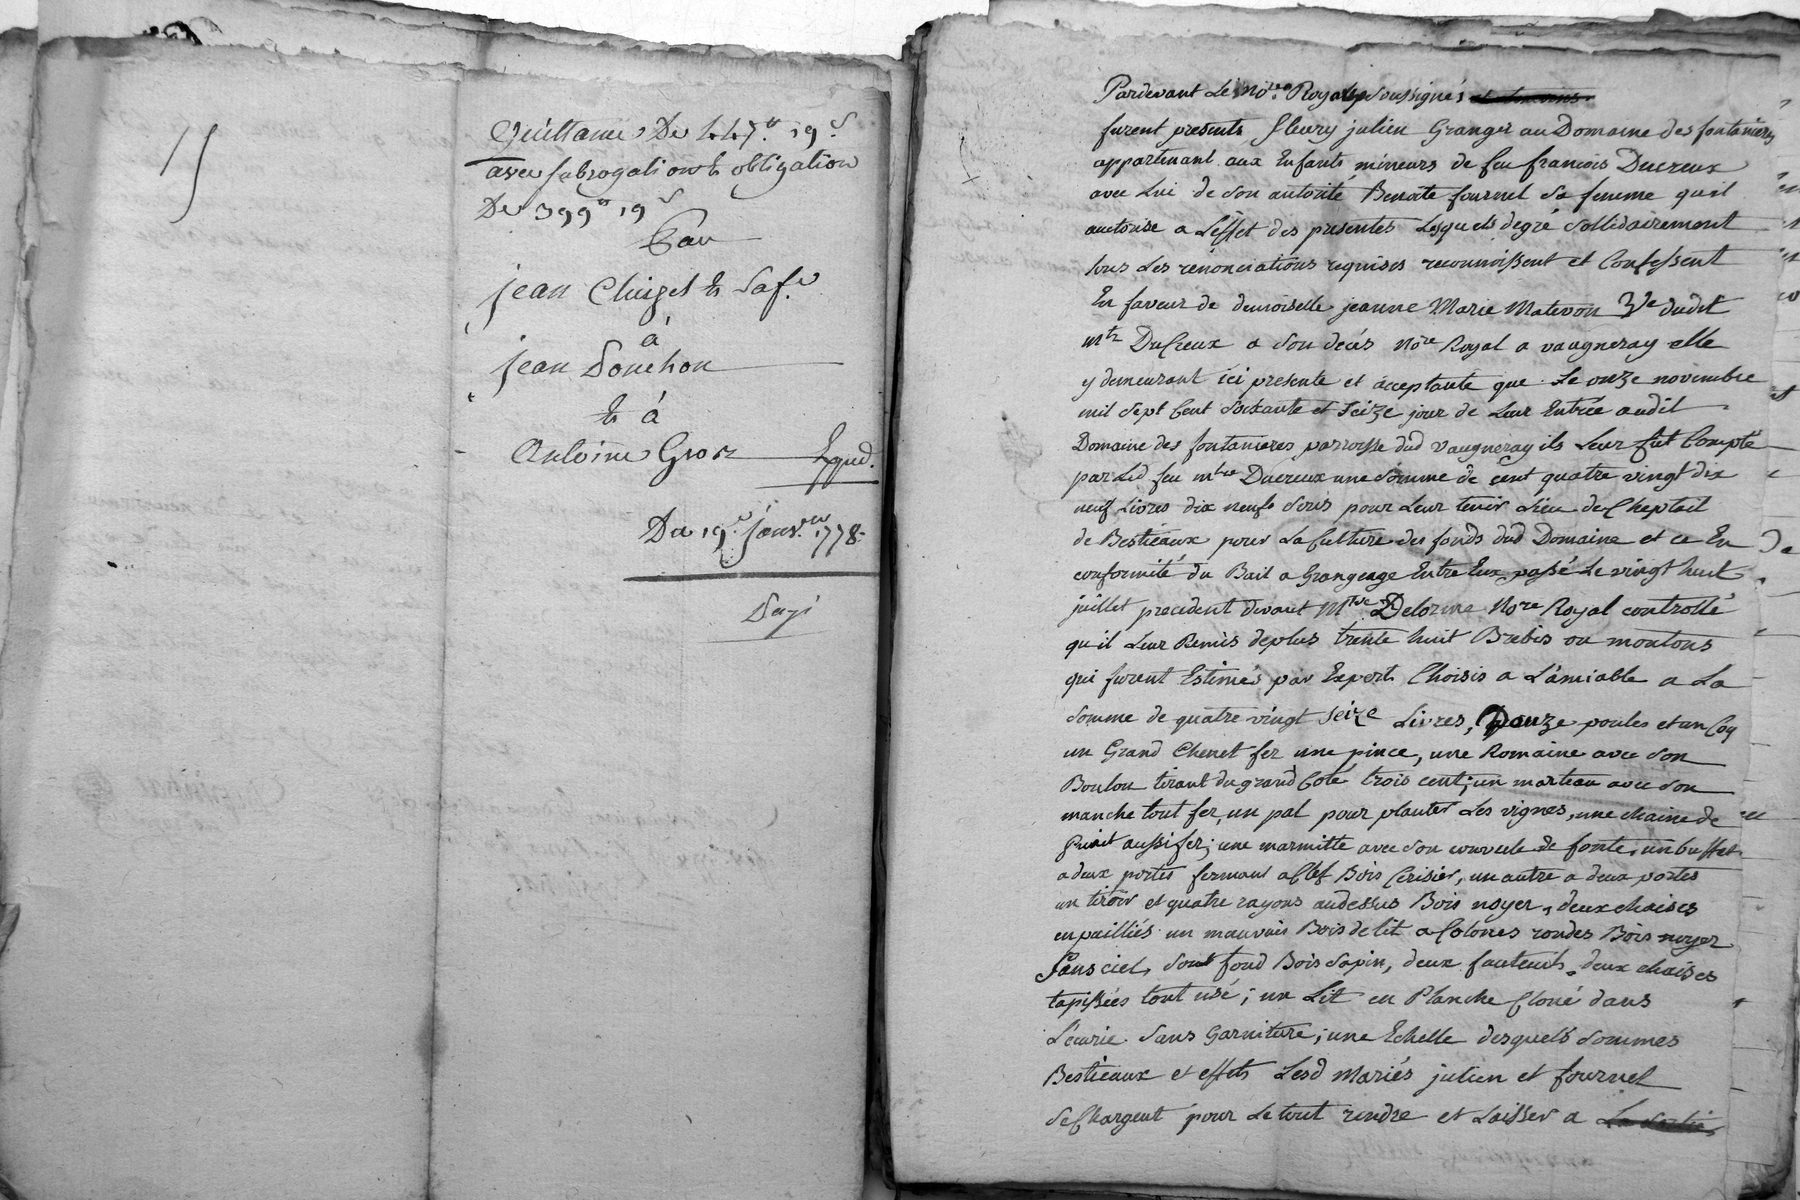 15
Quittance De 447.tt 19.s
avec subrogation & obligation
De 399tt 19s
Par
jean Clugel & Safe
à
jean Souchon
& à
Antoine Gros Exped.
Du 19e janv.er 1778.
Dazi
Pardevant Le Nore Royal Soussignés
furent presents fleury julien Granger au Domaine des fontanieres
appartenant aux Enfants mineurs de feu francois Ducreux
avec Lui de Son autorité Benoite fournel Sa femme quil
autorise a Leffet des presentes Lesquels degré Sollidairement
sous Les rénonciations requises reconnoissent et Confessent
En faveur de demoiselle jeanne Marie Matevon Ve dudit
mtr DuCreux a Son decés Nore Royal a vaugneray elle
y demeurant ici presente et acceptante que Le onze novembre
mil Sept Cent Soixante et Seize jour de Leur Entrée audit
Domaine des fontanieres parroisse dud Vaugneray ils Leur fut Compté
par Led feu mtre Ducreux une Somme de cent quatre vingt dix
neuf Livres dix neufs Sous pour Leur tenir Lieu de Cheptail
de Bestieaux pour La Culture des fonds dud Domaine et ce En
conformité du Bail a Grangeage Entre Eux passé Le vingt huit
juillet precedent devant Mtre Delorme Nore Royal controllé
qu il Leur Remis deplus trente huit Brebis ou moutons
qui furent Estimés par Expert Choisis a L'amiable a La
Somme de quatre vingt Seize Livres, Douze poules et un Coq
un Grand Chenet fer une pince, une Romaine avec Son
Boulon tirant du grand Coté trois cent, un marteau avec Son
manche tout fer, un pal pour planter Les vignes, une chaine de
Puit aussi fer; une marmitte avec Son couvecle de fonte, un buffet
a deux portes fermant a Clef Bois Cerisier, un autre a deux portes
un tiroir et quatre rayons audessus Bois noyer, deux chaises
enpailliés un mauvais Bois de lit a Colones rondes Bois noyer
Sans ciel, Sont fond Bois Sapin, deux fauteuils, deux chaises
tapissées tout usé; un Lit en Planche Cloué dans
L'ecurie Sans Garniture; une Echelle desquels Sommes
Bestieaux et effets Lesd Mariés julien et fournel
Se Chargent pour Le tout rendre et Laisser a La Sortie